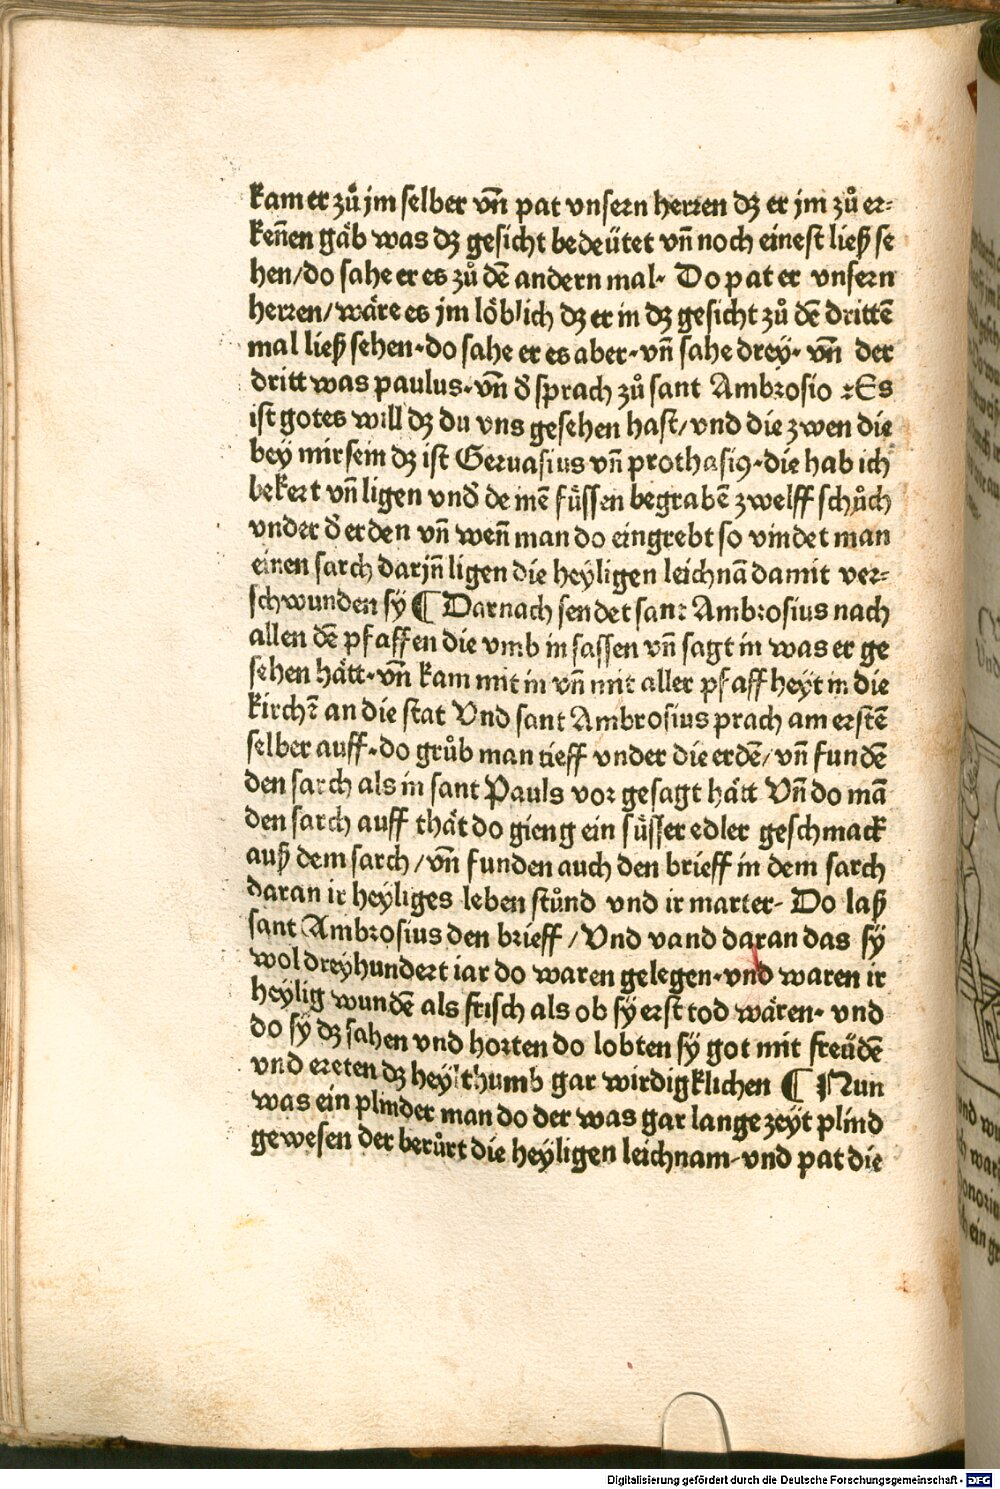 kam er zů jm selber vn̄ pat vnsern herren dʒ er jm zů er⸗
ken̄en gäb was dʒ gesicht bedeütet vn̄ noch einest ließ se
hen/do sahe er es zů dē andern mal· Do pat er vnsern
herren/wäre es jm löblich dʒ er in dʒ gesicht zů dē drittē
mal ließ sehen·do sahe er es aber·vn̄ sahe drey· vn̄ der
dritt was paulus·vn̄ d̄ sprach zů sant Ambrosio :Es
ist gotes will dʒ du vns gesehen hast/vnd die zwen die
bey mir sein dʒ ist Geruasius vn̄ prothasiꝯ·die hab ich
bekert vn̄ ligen vnd̄ deinē füssen begrabē zwelff schůch
vnder d̄ erden vn̄ wen̄ man do eingrebt so vindet man
einen sarch darjn̄ ligen die heyligen leichnā damit ver⸗
schwunden sÿ ¶ Darnach sendet sant Ambrosius nach
allen dē pfaffen die vmb in sassen vn̄ sagt in was er ge
sehen hätt·vn̄ kam mit in vn̄ mit aller pfaffheyt in die
kirchē an die stat Vnd sant Ambrosius prach am erstē
selber auff·do grůb man tieff vnder die erdē/vn̄ fundē
den sarch als in sant Pauls vor gesagt hätt Vn̄ do mā
den sarch auff thät do gieng ein süsser edler geschmack
auß dem sarch/vn̄ funden auch den brieff in dem sarch
daran ir heyliges leben stůnd vnd ir marter· Do laß
sant Ambrosius den brieff /Vnd vand daran das sÿ
wol dreyhundert iar do waren gelegen·vnd waren ir
heylig wundē als frisch als ob sÿ erst tod wären· vnd
do sÿ dʒ sahen vnd horten do lobten sÿ got mit freüdē
vnd ereten dʒ heylthumb gar wirdigklichen ¶ Nun
was ein plinder man do der was gar lange zeyt plind
gewesen der berůrt die heyligen leichnam·vnd pat die
Digitalisierung gefördert durch die Deutsche Forschungsgemeinschaft - DFG